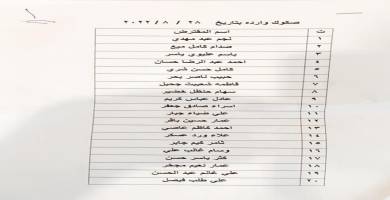 صكوك وارده بتاريخ ٢٨ / ٨ / ٢٠٢٢
ت اسم المقترض
١ نجم عبد مهدي
٢ صدام كامل ميع
٣ باسم عليوي ياسر
٤ احمد عبد الرضا حسان
٥ كامل حسن شري
٦ حبيب ناصر بحر
٧ فاطمه شعيبث جحيل
٨ سهام حنظل خضير
٩ عادل عباس كريم
١٠ اسراء صادق جعفر
١١ علي ضياء جبار
١٢ عمار حسين باقر
١٣ احمد كاظم عاصي
١٤ علاء ورد عسكر
١٥ ثامر كيم جابر
١٦ وسام غالب علي
١٧ كثار ياسر حسن
١٨ عمار نعيم مجخر
١٩ علي غانم عبد الحسن
٢٠ علي طلب فيصل